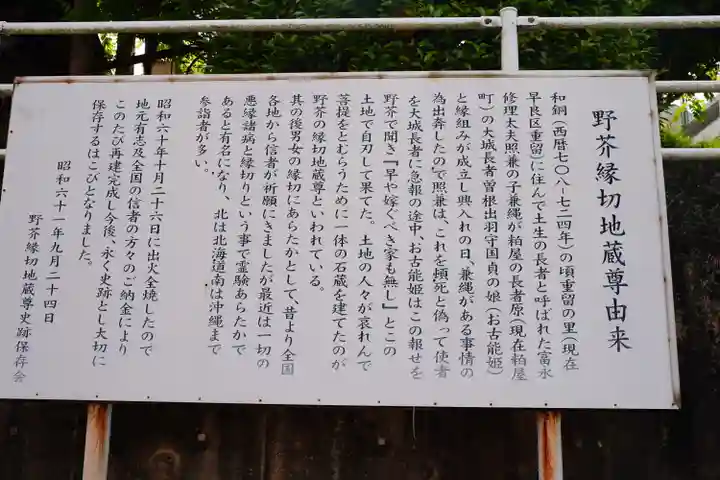 野芥縁切地蔵尊由来
和銅(西暦七〇八-七二四年)の頃重留の里(現在
早良区重留)に住んで土生の長者と呼ばれた富永
修理太夫照兼の子兼縄が粕屋の長者原(現在粕屋
町)の大城長者曽根出羽守国貞の娘(お古能姫)
と縁組みが成立し輿入れの日、兼縄がある事情の
為出奔したので照兼は、これを頓死と偽って使者
を大城長者に急報の途中、お古能姫はこの報せを
野芥で聞き『早や嫁ぐべき家も無し』とこの
土地で自刃して果てた。土地の人々が哀れんで
菩提をとむらうために一体の石蔵を建てたのが
野芥の縁切地蔵尊といわれている。
其の後男女の縁切にあらたかとして、昔より全国
各地から信者が祈願にきましたが最近は一切の
悪縁諸病と縁切りという事で霊験あらたかで
あると有名になり、北は北海道南は沖縄まで
参詣者が多い。
昭和六十年十月二十六日に出火全焼したので
地元有志及全国の信者の方々のご納金により
このたび再建完成し今後、永く史跡とし大切に
保存するはこびとなりました。
昭和六十一年九月二十四日
野芥縁切地蔵尊史跡保存会